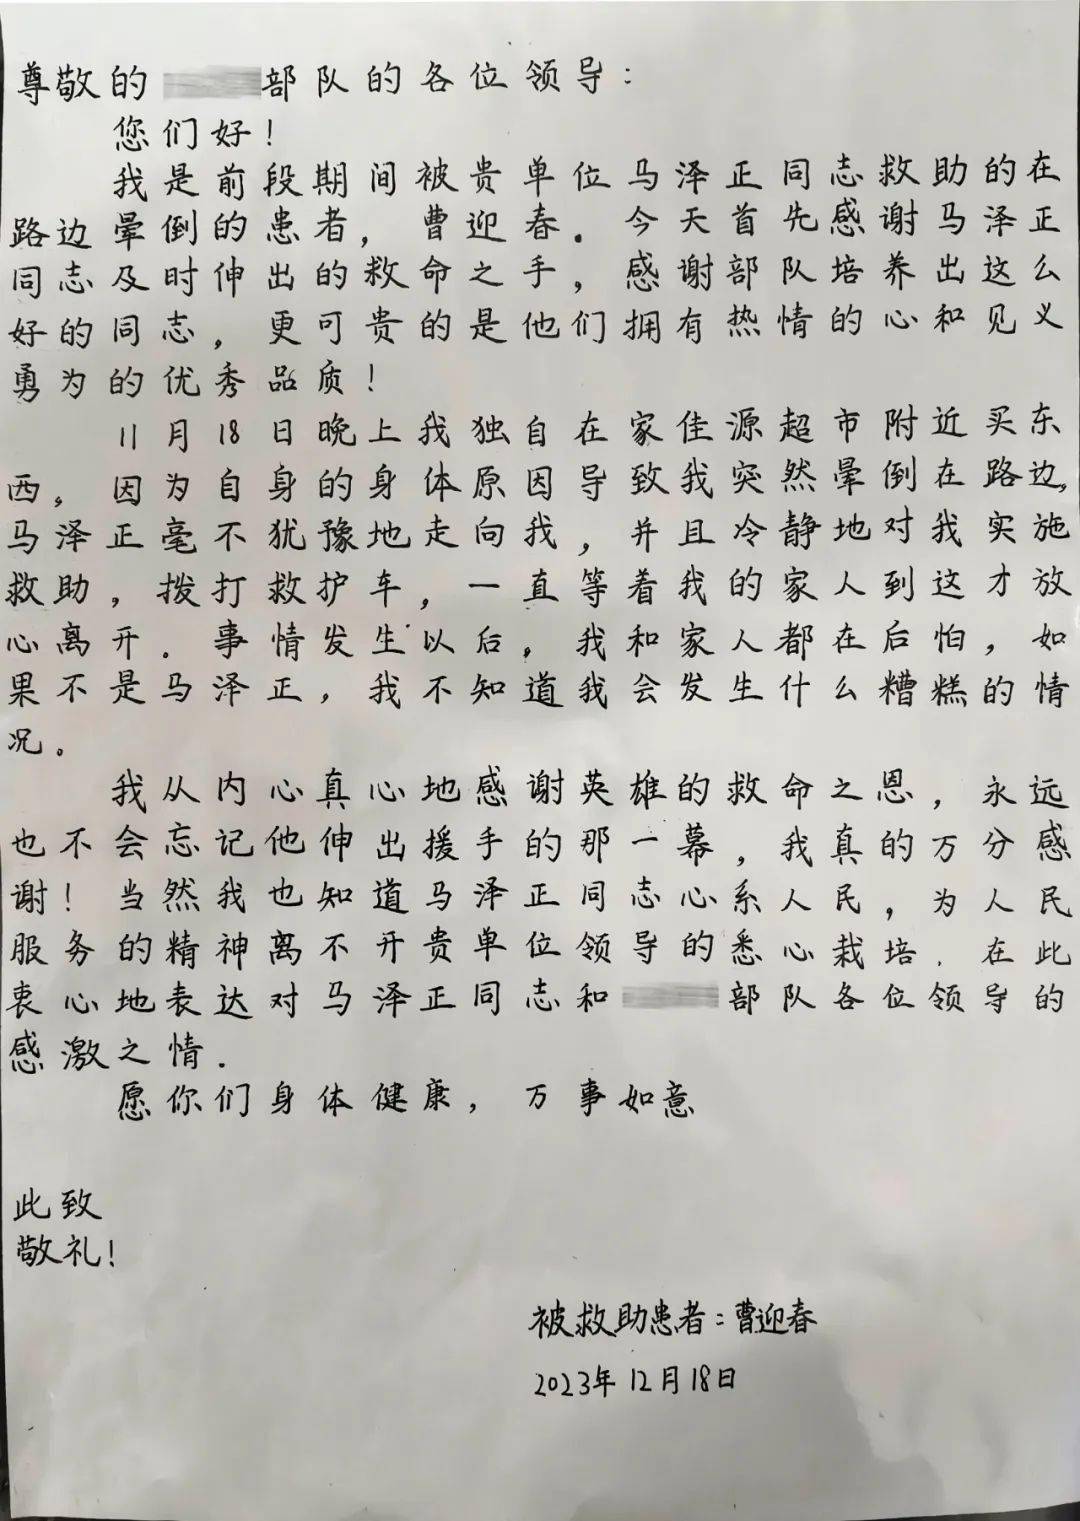 尊敬的 部队的各位领导：
您们好！
我是前段期间被贵单位马泽正同志救助的在
路边晕倒的患者，曹迎春．今天首先感谢马泽正
同志及时伸出的救命之手，感谢部队培养出这么
好的同志，更可贵的是他们拥有热情的心和见义
勇为的优秀品质！
11月18日晚上我独自在家佳源超市附近买东
西，因为自身的身体原因导致我突然晕倒在路边，
马泽正毫不犹豫地走向我，并且冷静地对我实施
救助，拨打救护车，一直等着我的家人到这才放
心离开．事情发生以后，我和家人都在后怕，如
果不是马泽正，我不知道我会发生什么糟糕的情
况。
我从内心真心地感谢英雄的救命之恩，永远
也不会忘记他伸出援手的那一幕，我真的万分感
谢！当然我也知道马泽正同志心系人民，为人民
服务的精神离不开贵单位领导的悉心栽培．在此
衷心地表达对马泽正同志和 部队各位领导的
感激之情．
愿你们身体健康，万事如意
此致
敬礼！
被救助患者：曹迎春
2023年12月18日